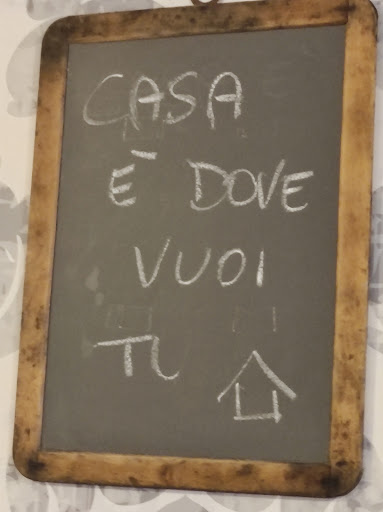 CASA
È DOVE
VUOI
TU